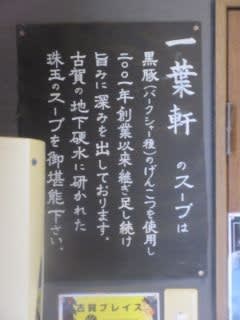 一葉軒のスープは
黒豚(バークシャー種)のげんこつを使用し
二〇〇一年創業以来継ぎ足し続け
旨みに深みを出しております。
古賀の地下硬水に研かれた
珠玉のスープを御堪能下さい。
古賀プレイス